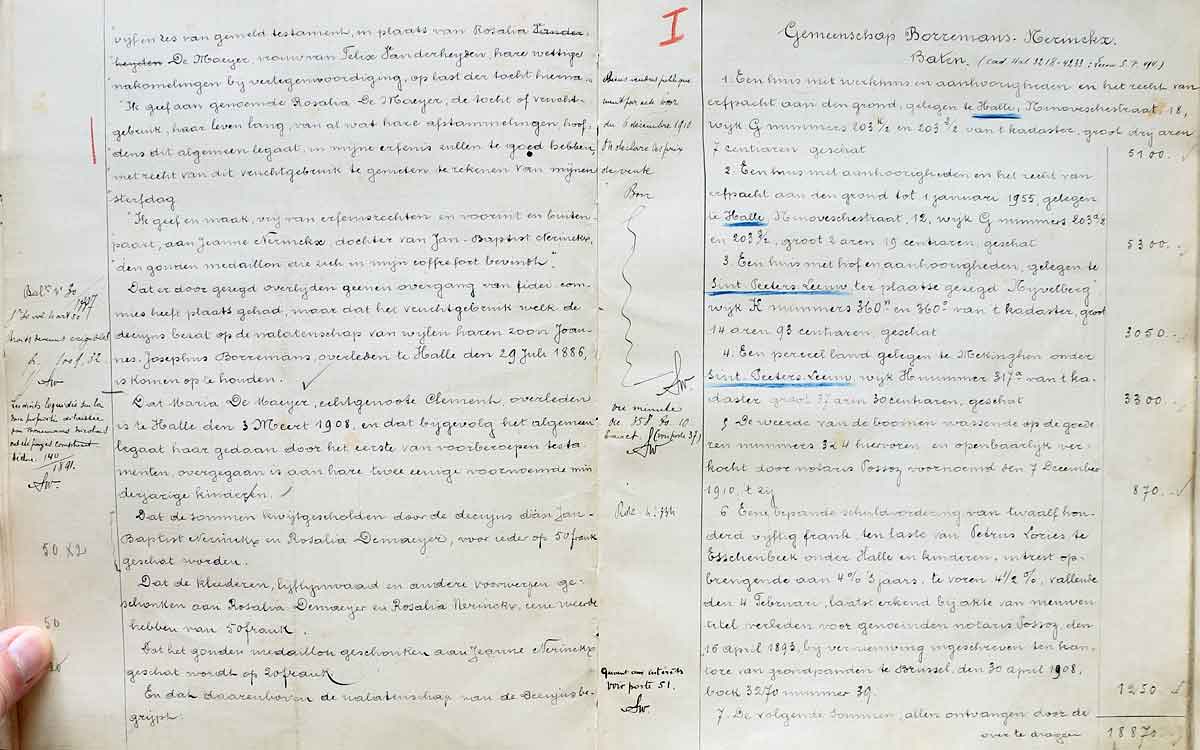 vijf en zes van gemeld testament, in plaats van Rosalia Vander-
heyden De Maeyer, vrouw van Felix Vanderheyden, hare wettige
nakomelingen bij vertegenwoordiging, op last der tocht hierna.
"Ik geef aan genoemde Rosalia De Maeyer, de tocht of vrucht-
gebruik, haar leven lang, van al wat hare afstammelingen, hoof-
dens dit algemeen legaat, in mijne erfenis zullen te goed hebben,
met recht van dit vruchtgebruik te genieten te rekenen van mijnen
sterfdag
"Ik geef en maak, vrij van erfenisrechten en vooruit en buiten
paart, aan Jeanne Nerinckx, dochter van Jan-Baptist Nerinckx,
"den gouden medaillon die zich in mijn coffrefort bevindt."
Dat er door gezegd overlijden geenen overgang van fidei-com-
mies heeft plaats gehad, maar dat het vruchtgebruik welk de
decujus bezat op de nalatenschap van wijlen haren zoon Joan-
nes Josephus Borremans, overleden te Halle den 29 Juli 1886,
is komen op te houden.
Dat Maria De Maeyer, echtgenoote Clement, overleden
is te Halle den 3 Meert 1908, en dat bijgevolg het algemeen
legaat haar gedaan door het eerste van voorberoepen testa-
menten, overgegaan is aan hare twee eenige voornoemde min
derjarige kinderen.
Dat de sommen kwijtgescholden door de decujus aan Jan-
Baptist Nerinckx en Rosalia Demaeyer, voor ieder op 50 frank
geschat worden.
50 x 2
Dat de kleederen, lijflijnwaad en andere voorwerpen ge-
schonken aan Rosalia Demaeyer en Rosalia Nerinckx, eene weerde
hebben van 50 frank.
50
Dat het gouden medaillon geschonken aan Jeanne Nerinckx
geschat wordt op 20 frank
20
En dat daarenboven de nalatenschap van de Decujus be-
grijpt:
1891.
Sw.
I
du 6 décembre 1910
Bon
Sw.
voir porte 37)
Sw
Quant aux intérêts
voir porte 51.
Sw.
Gemeenschap Borremans-Nerinckx.
Baten.
1. Een huis met werkhuis en aanhoorigheden en het recht van
erfpacht aan den grond, gelegen te Halle, Ninoveschestraat, 18,
wijk G nummers 203 en 203 van 't kadaster, groot drij aren
7 centiaren geschat 5100.-
2. Een huis met aanhoorigheden en het recht van
erfpacht aan den grond tot 1 januari 1955, gelegen
te Halle, Ninoveschestraat, 12, wijk G nummers 203
en 203, groot 2 aren 19 centiaren, geschat 5300.-
3. Een huis met hof en aanhoorigheden, gelegen te
Sint Peeters Leeuw, ter plaatse gezegd Nijvelberg
wijk K nummers 360 en 360 van 't kadaster, groot
14 aren 93 centiaren, geschat 3050.-
4. Een perceel land gelegen te Mekinghen onder
Sint Peeters Leeuw, wijk H nummer 317a van 't ka-
daster groot 37 aren 30 centiaren, geschat 3300.-
5. De weerde van de boomen wassende op de goede
ren nummers 3 & 4 hiervoren en openbaarlijk ver-
kocht door notaris Possoz voornoemd den 7 December
1910, 't zij 870.-
6. Eene bepande schuldvordering van twaalf hon-
derd vijftig frank, ten laste van Petrus Lories te
Esschenbeek onder Halle en kinderen, intrest op-
brengende aan 4% 's jaars, te voren 4 1/2 %, vallende
den 4 Februari, laatst erkend bij akte van nieuwen
titel verleden voor genoemden notaris Possoz, den
16 april 1893, bij vernieuwing ingeschreven ten kan-
tore van grondpanden te Brussel, den 30 april 1908,
boek 3270 nummer 39. 1250
7. De volgende sommen, allen ontvangen door de
over te dragen 1887